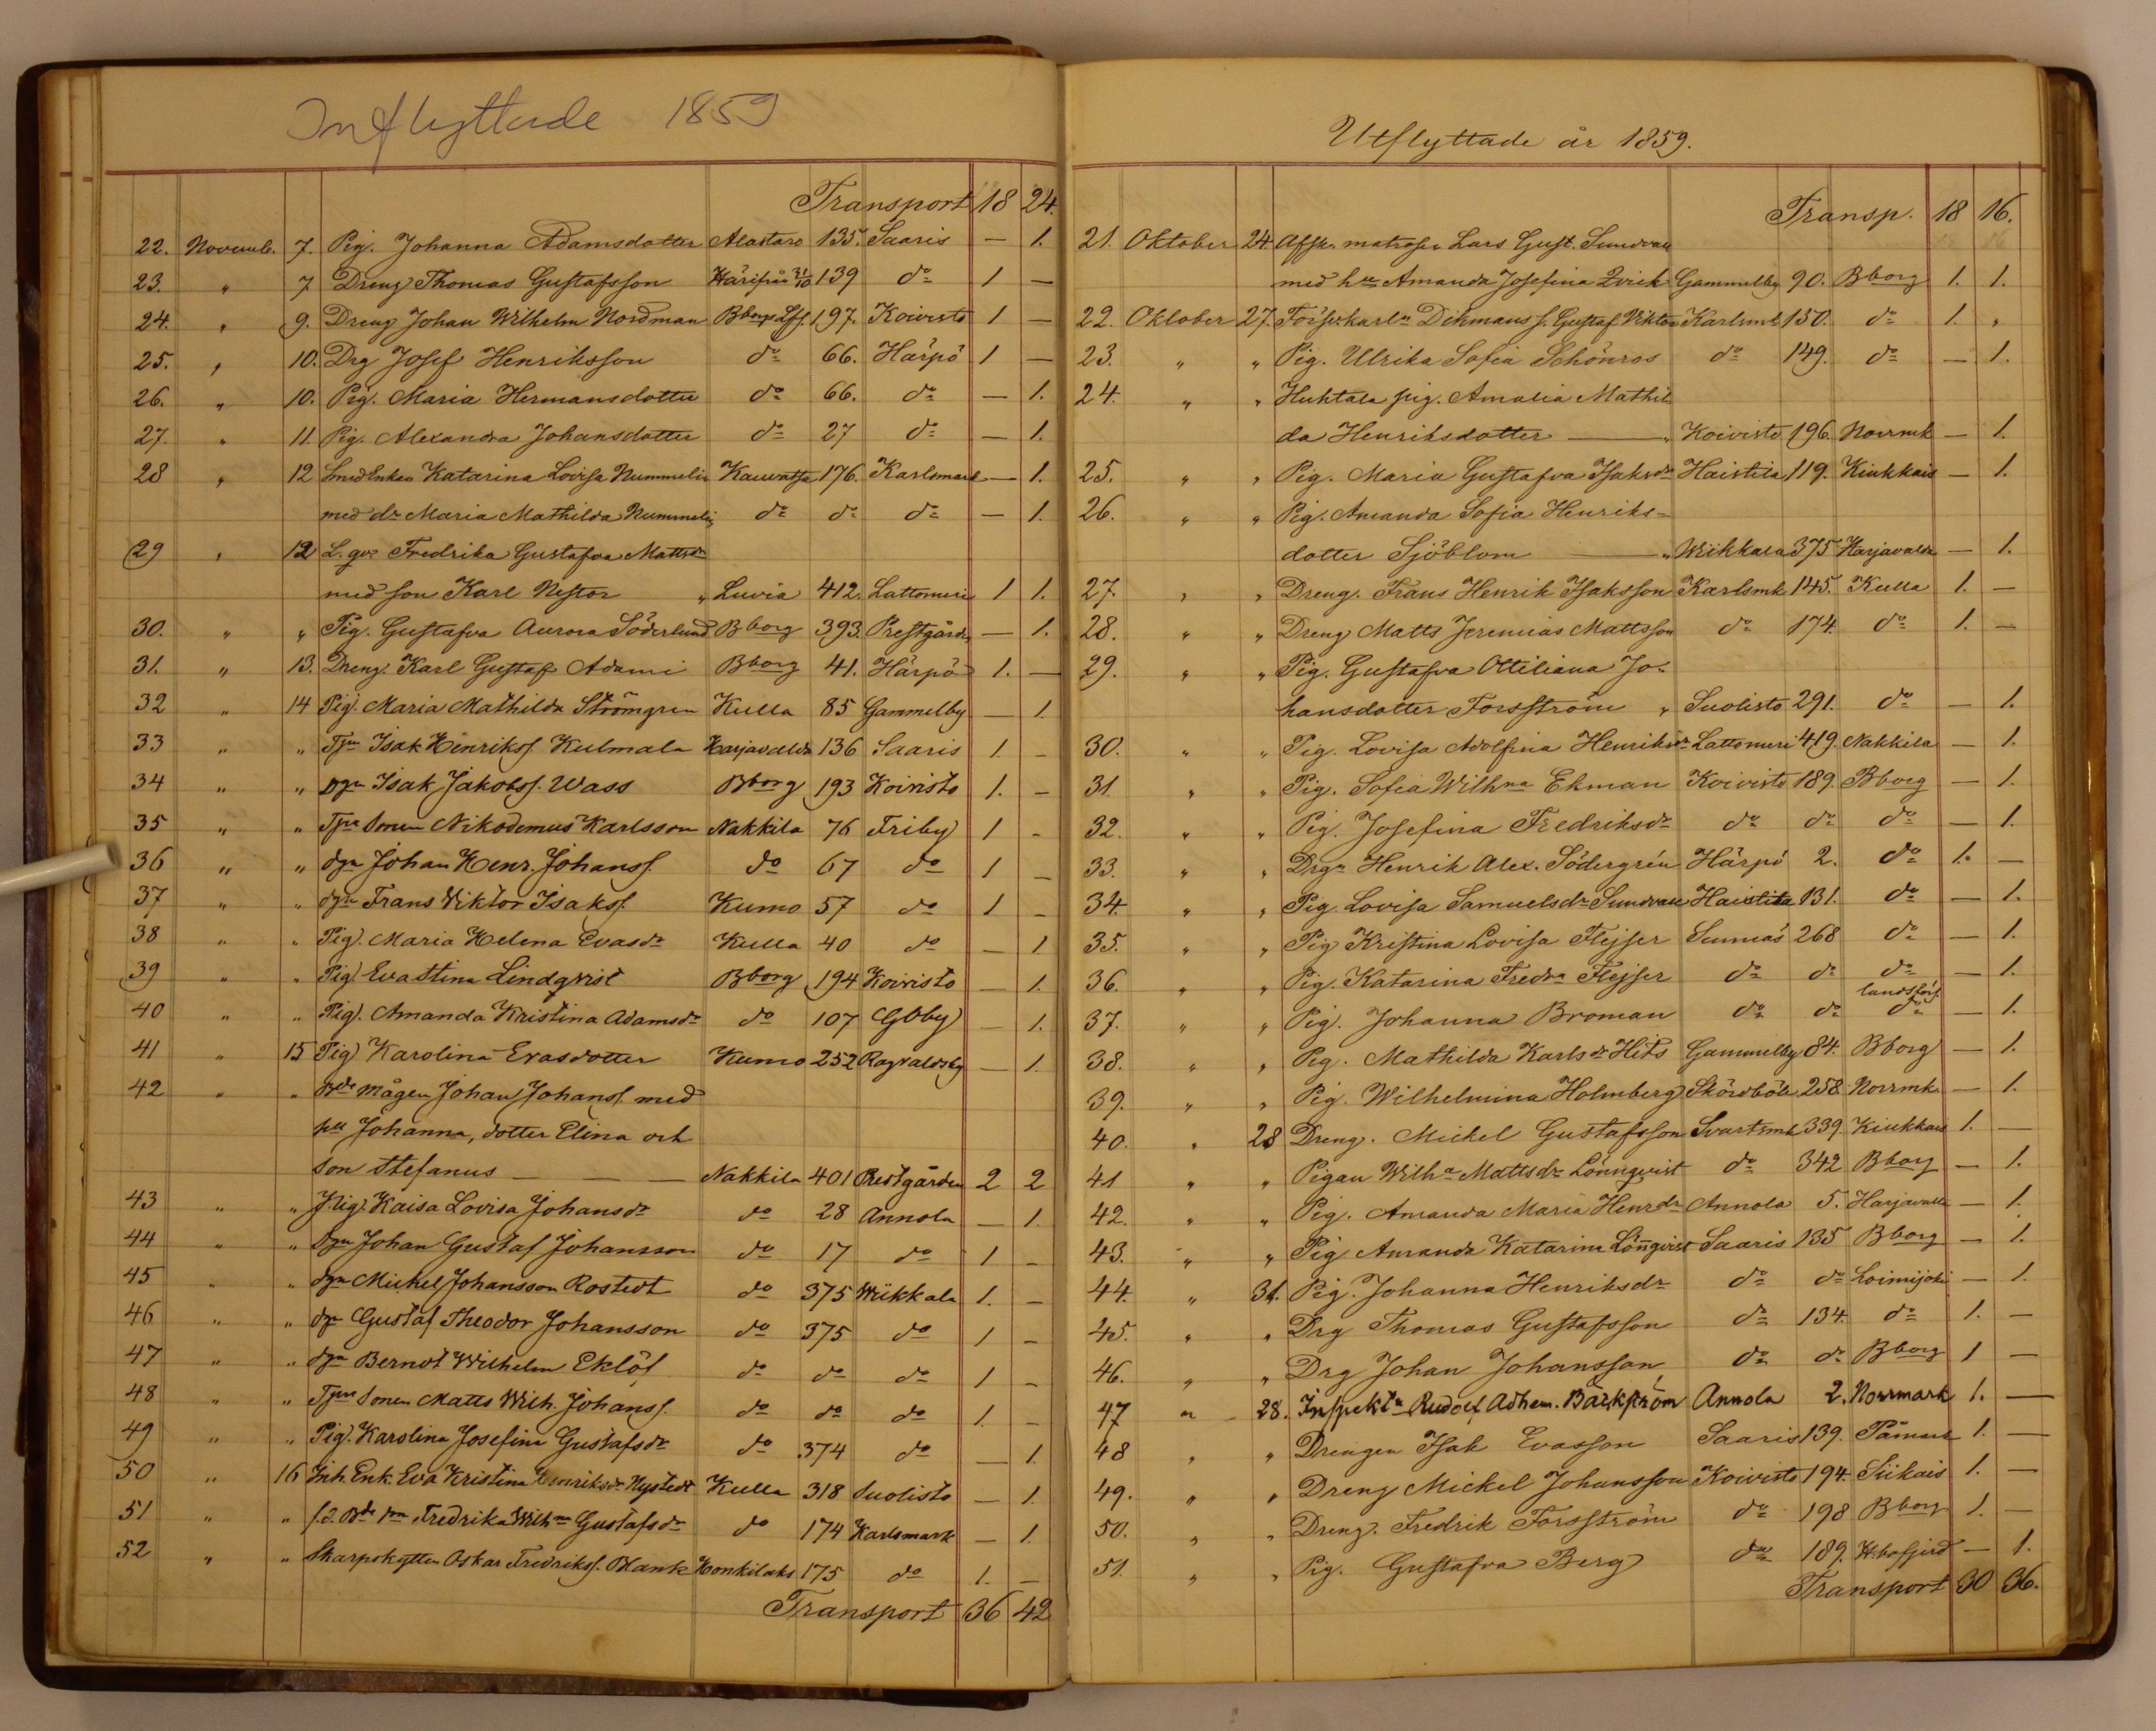 Inflyttade 1859
Transport 18 24.
22. Novemb. 7. Pig. Johanna Adamsdotter Alastaro 135. Saaris — 1.
23. " 7 Dreng Thomas Gustafsson Härifrån 31/10 139 do 1 —
24. " 9. Dreng Johan Wilhelm Nordman Bborgs Lff. 197. Koivisto 1 —
25. " 10. Drg Josef Henriksson do 66. Härpö 1 —
26. " 10. Pig. Maria Hermansdotter do 66. do — 1.
27. " 11. Pig. Alexandra Johansdotter do 27 do — 1.
28 " 12 Smed Enkan Katarina Lovisa Nummelin Kauvatsa 176. Karlsmark — 1.
med dr Maria Mathilda Nummelin do do do — 1.
29 " 12 L. qvs Fredrika Gustafva Mattsdr
med son Karl Nestor " Luvia 412. Lattomeri 1 1.
30. " " Pig. Gustafva Aurora Söderlund Bborg 393. Prestgårdn — 1.
31. " 13. Dreng. Karl Gustaf Adami Bborg 41. Härpö 1. —
32 " 14 Pig. Maria Mathilda Strömgren Kulla 85 Gammelby — 1.
33 " " Tjrn Isak Henrikss. Kulmala Harjavalda 136 Saaris 1. -
34 " " Dgn Isak Jakobss. Wass Bborg 193 Koivisto 1. -
35 " " Tjre Sonen Nikodemus Karlsson Nakkila 76 Friby 1 -
36 " " dgn Johan Henr. Johanss. do 67 do 1 -
37 " " dgn Frans Viktor Isakss. Kumo 57 do 1 -
38 " " Pig. Maria Helena Evasdr Kulla 40 do — 1
39 " " Pig. Eva Stina Lindqvist Bborg 194 Koivisto — 1.
40 " " Pig. Amanda Kristina Adamsdr do 107 Gbby — 1.
41 " 15 Pig Karolina Evasdotter Kumo 252 Ragvaldsby — 1.
42 " " Bde Mågen Johan Johanss. med
hu Johanna, dotter Elina och
son Stefanus — — — Nakkila 401 Prestgården 2 2
43 " " Pig. Kaisa Lovisa Johansdr do 28 Annola — 1.
44 " " Dgn Johan Gustaf Johansson do 17 do 1 -
45 " " dgn Michel Johansson Rostedt do 375 Wiikkala 1. -
46 " " dgn Gustaf Theodor Johansson do 375 do 1 -
47 " " dgn Berndt Wilhelm Eklöf do do do 1 -
48 " " Tjre Sonen Matts Wilh. Johanss. do do do 1. -
49 " " Pig. Karolina Josefina Gustafsdr do 374 do — 1.
50 " 16 Inh. Enk. Eva Kristina Henriksdr Nystedt Kulla 318 Suolisto — 1.
51 " " f.d. Bde pn Fredrika Wilhna Gustafsdr do 174 Karlsmark — 1.
52 " " Skarpskytten Oskar Fredrikss. Blank Honkilaks 175 do 1. —
Transport 36 42
Utflyttade år 1859.
Transp. 18 16.
21. Oktober 24. Affsk. matrosen Lars Gust. Sundvall
med hu Amanda Josefina Qvick Gammelby 90. Bborg 1. 1.
22. Oktober 27. Torpskarln Dikmans s. Gustaf Viktor Karlsmk 150. do 1. "
23. " " Pig. Ulrika Sofia Schönros do 149. do — 1.
24. " " Huhtala pig. Amalia Mathil
da Henriksdotter — " Koivisto 196. Norrmk — 1.
25. " " Pig. Maria Gustafva Isaksdr Haistila 119. Kiukkais — 1.
26. " " Pig. Amanda Sofia Henriks=
dotter Sjöblom — " Wiikkala 375 Harjavalda — 1.
27. " " Dreng. Frans Henrik Isaksson Karlsmk 145. Kulla 1. —
28. " " Dreng Matts Jeremias Mattsson do 174. do 1. —
29. " " Pig. Gustafva Ottiliana Jo=
hansdotter Forsström " Suolisto 291. do — 1.
30. " " Pig. Lovisa Adolfina Henriksdr Lattomeri 419. Nakkila — 1.
31. " " Pig. Sofia Wilhna Ekman Koivisto 189. Bborg — 1.
32. " " Pig. Josefina Fredriksdr do do do — 1.
33. " " Drgn Henrik Alex. Södergrén Härpö 2. do 1. —
34. " " Pig. Lovisa Samuelsdr Sundvall Haistila 131. do — 1.
35. " " Pig Kristina Lovisa Flejser Sunnäs 268 do — 1.
36. " " Pig. Katarina Fredra Flejser do do do — 1.
landsförs.
37. " " Pig. Johanna Broman do do do — 1.
38. " " Pig. Mathilda Karlsdr Hits Gammelby 84. Bborg — 1.
39. " " Pig. Wilhelmina Holmberg Skördböle 258. Norrmk. — 1.
40. " 28 Dreng. Mickel Gustafsson Svartsmk 339. Kiukkais 1. —
41 " " Pigan Wilha Mattsdr Lönnqvist do 342 Bborg — 1.
42. " " Pig. Amanda Maria Henrdr Annola 5. Harjavalla — 1.
43. " " Pig. Amanda Katarina Lönqvist Saaris 135 Bborg — 1.
44. " 31. Pig. Johanna Henriksdr do do Loimijoki — 1.
45. " " Drg Thomas Gustafsson do 134. do 1. —
46. " " Drg Johan Johansson do do Bborg 1 —
47 " 28. Inspektn Rudolf Adhem. Bäckström Annola 2. Norrmark 1. —
48 " " Drengen Isak Evasson Saaris 139. Påmark 1. —
49. " " Dreng Mickel Johansson Koivisto 194. Siikais 1. —
50. " " Dreng. Fredrik Forsström do 198 Bborg 1. —
51. " " Pig. Gustafva Berg do 189. H:bofjerd — 1.
Transport 30 36.